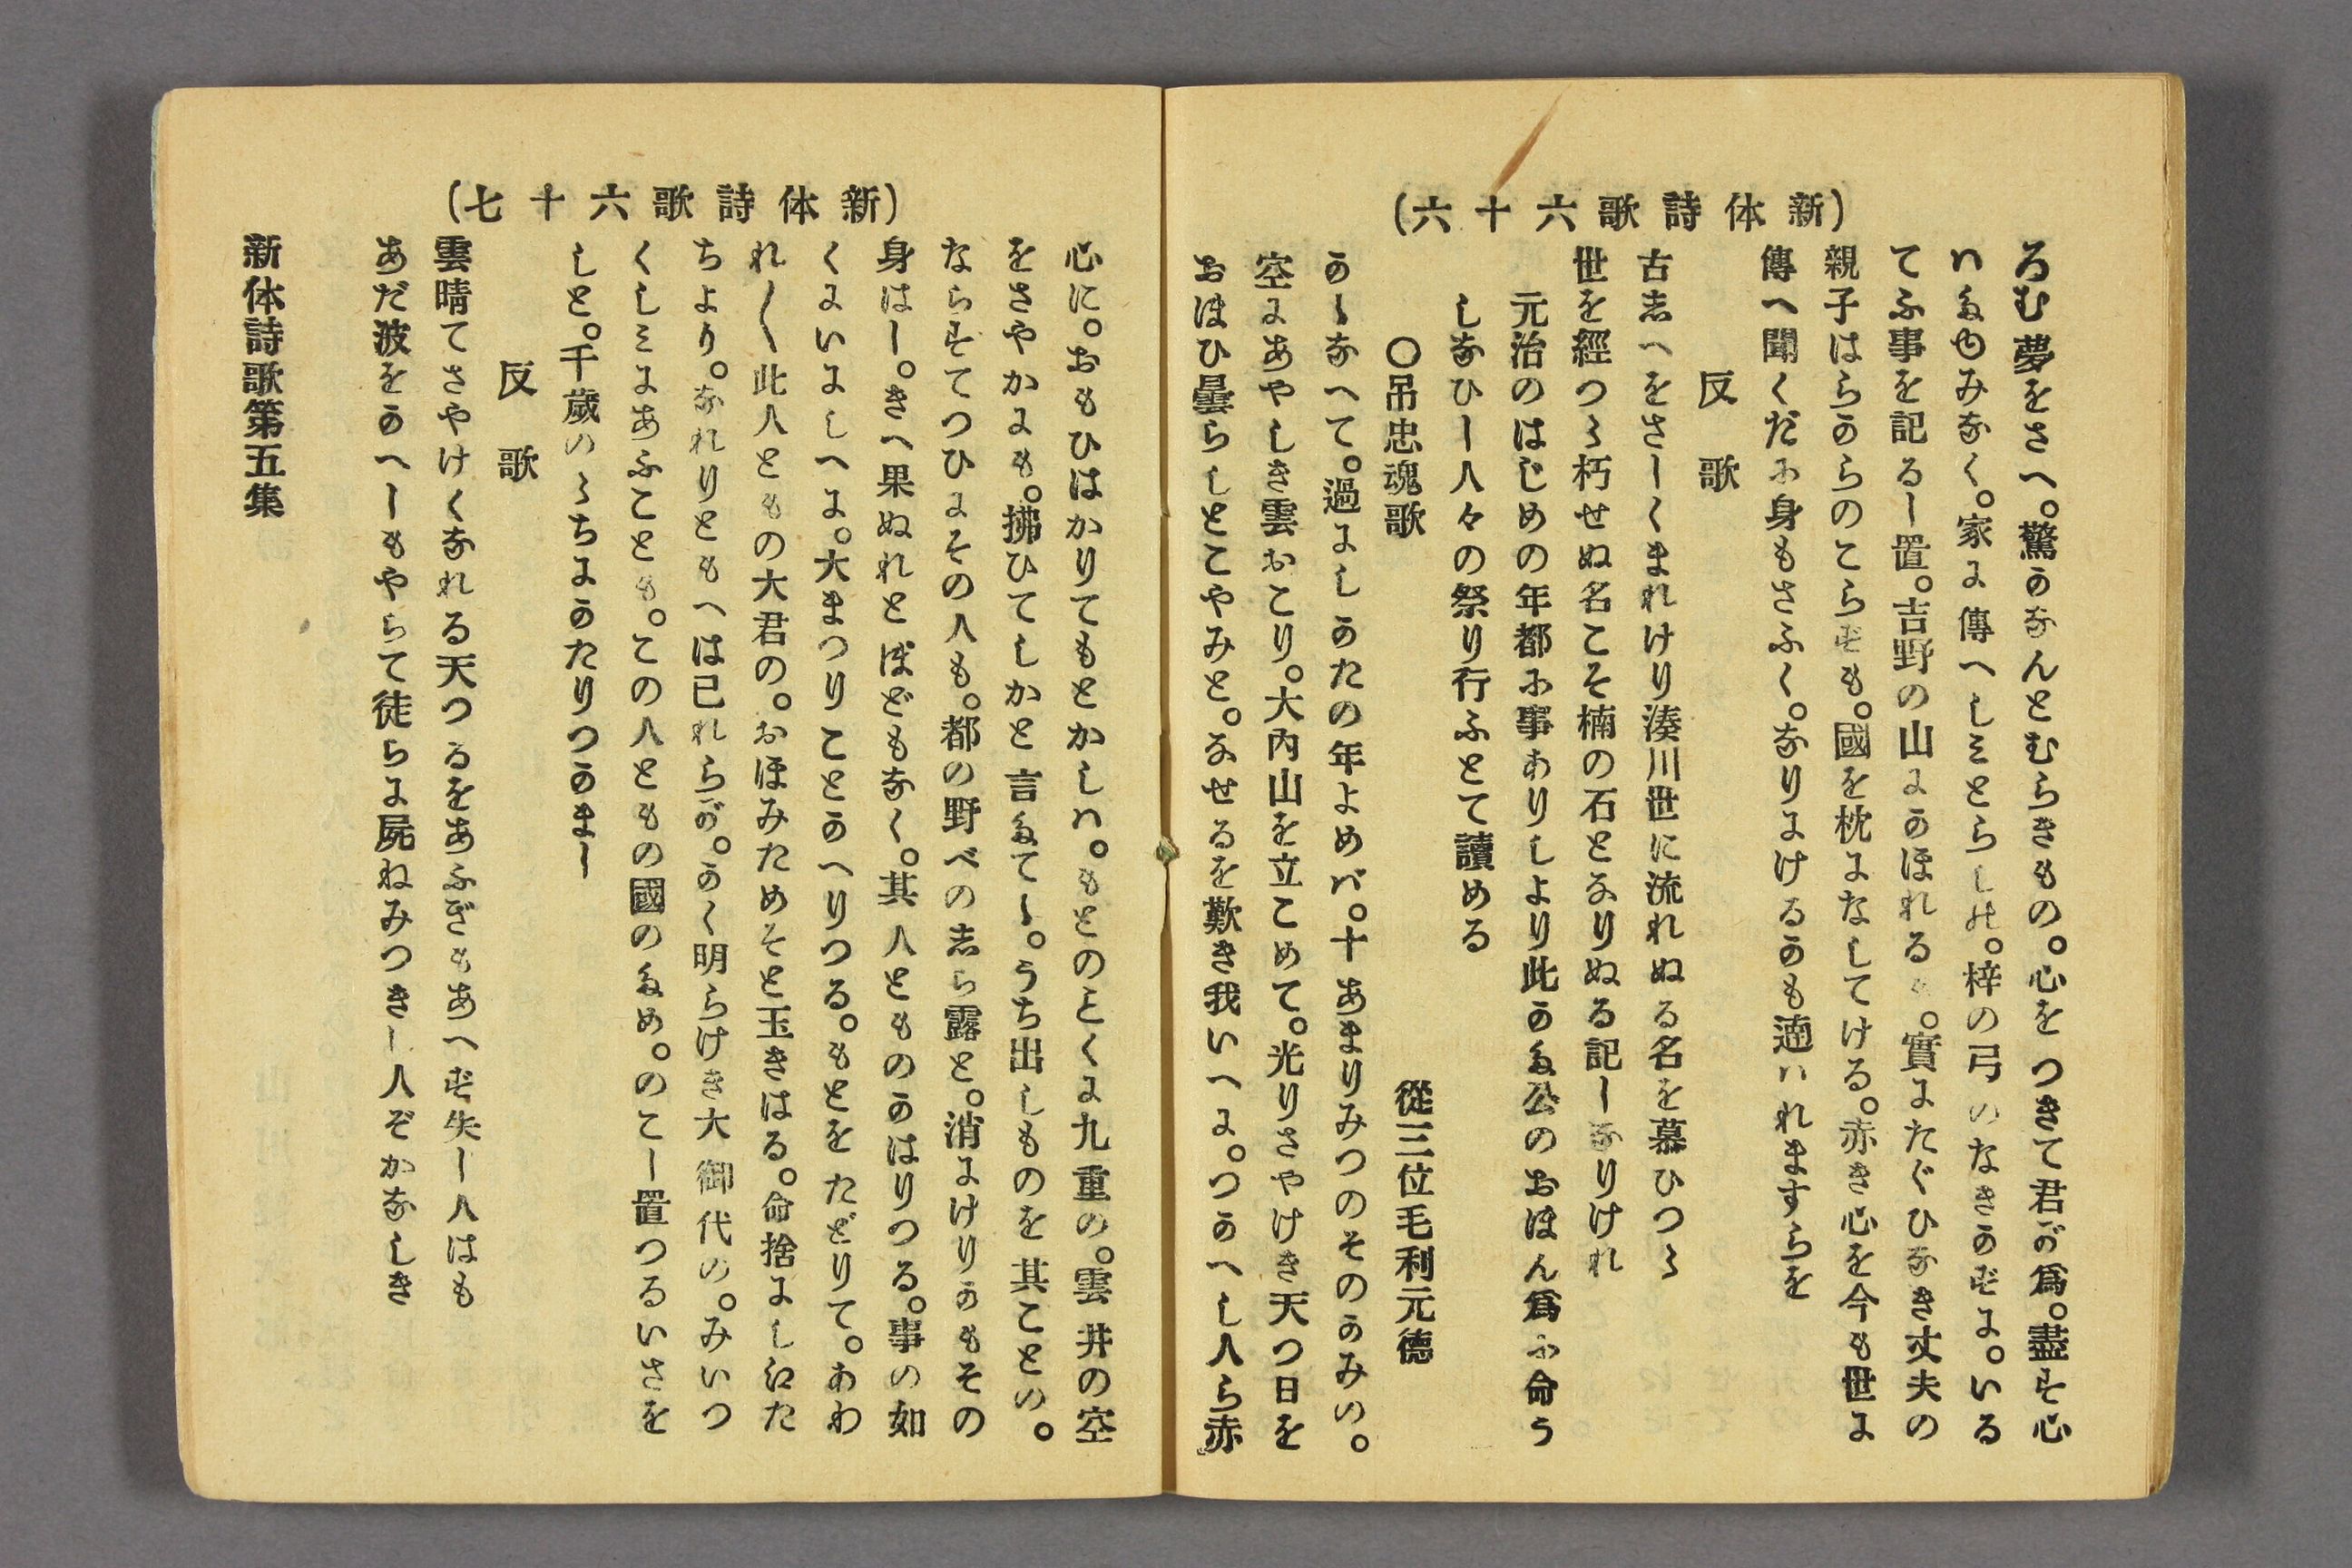 (新体詩歌六十六)
ろむ夢をさへ。驚かなんとむらきもの。心をつきて君が爲。盡す心
ハたゆみなく。家に傳へしミとらしの。梓の弓のなきかずに。いる
てふ事を記るし置。吉野の山にかほれるも。實にたぐひなき丈夫の
親子はらからのこらずも。國を枕になしてける。赤き心を今も世に
傳へ聞くだに身もさふく。なりにけるかも遖ハれますらを
反歌
古志へをさしくまれけり湊川世に流れぬる名を慕ひつゝ
世を經つゝ朽せぬ名こそ楠の石となりぬる記しなりけれ
元治のはじめの年都に事ありしより此かた公のおほん爲に命う
しなひし人々の祭り行ふとて讀める
〇吊忠魂歌 從三位毛利元德
かゝなへて。過にしかたの年よめバ。十あまりみつのそのかみい。
空にあやしき雲おこり。大內山を立こめて。光りさやけき天つ日を
おほひ曇らしとこやみと。なせるを歎き我いへに。つかへし人ら赤
(新体詩歌六十七)
心に。おもひはかりてもとかしハ。もとのとくに九重の。雲井の空
をさやかにも。拂ひてしかと言たてゝ。うち出しものを其ことい。
ならずてつひにその人も。都の野べの志ら露と。消にけりかもその
身はし。きへ果ぬれとぽどもなく。其人とものかはりつる。事の如
くにいにしへに。大まつりことかへりつる。もとをたどりて。あわ
れ〱此人ともの大君の。おほみためそと玉きはる。命捨にしいた
ちより。なれりともへは已れらが。かく明らけき大御代の。みいつ
くしミにあふことも。この人ともの國のため。のこし置つるいさを
しと。千歲のゝちにかたりつかまし
反歌
雲晴てさやけくなれる天つるをあふぎもあへず失し人はも
あだ波をかへしもやらて徒らに屍ねみつきし人ぞかなしき
新体詩歌第五集